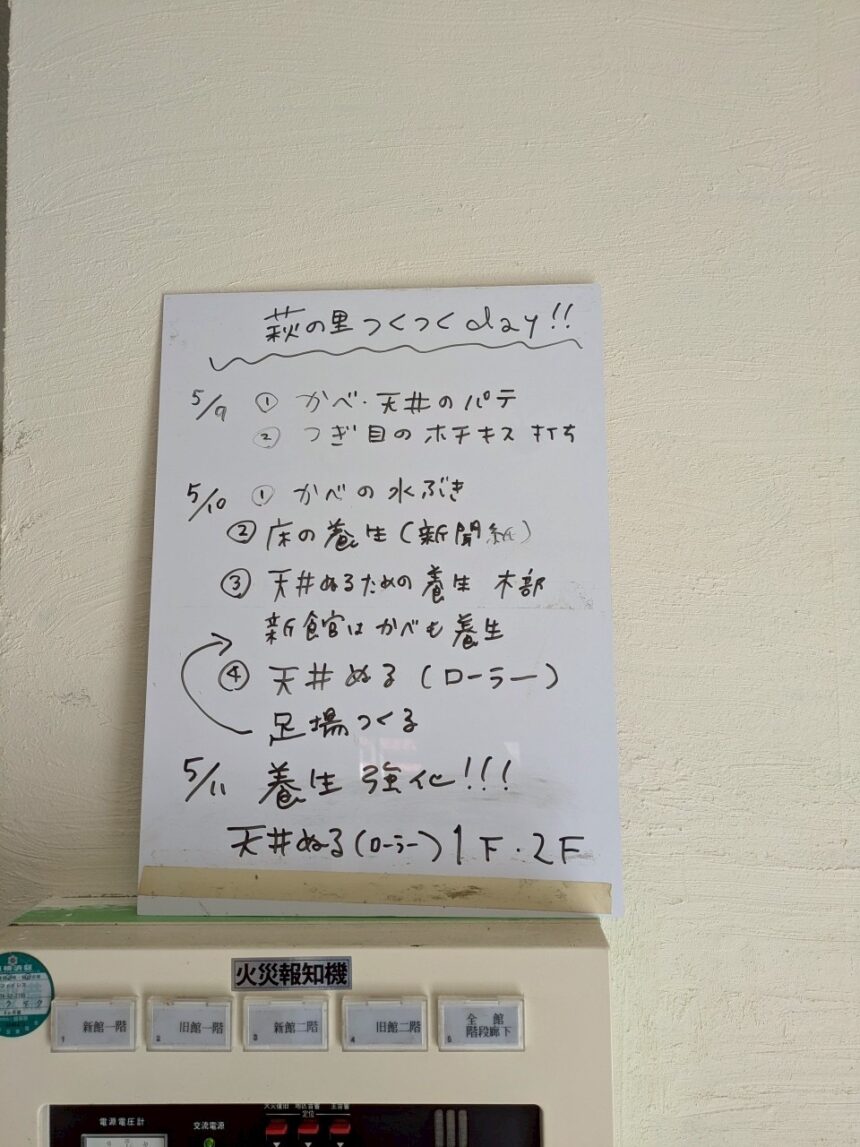 萩の里つくつくday!!
5/9 ① かべ・天井のパテ
② つぎ目のホチキス打ち
5/10 ① かべの水ぶき
② 床の養生(新聞紙)
③ 天井ぬるための養生 木部
新館はかべも養生
④ 天井ぬる(ローラー)
足場つくる
5/11 養生強化!!!
天井ぬる(ローラー)1F・2F
火災報知機
1 新館一階
2 旧館一階
3 新館二階
4 旧館二階
5 全館階段廊下
電源電圧計
交流電源
火災復旧 地区音響 主音響
定位